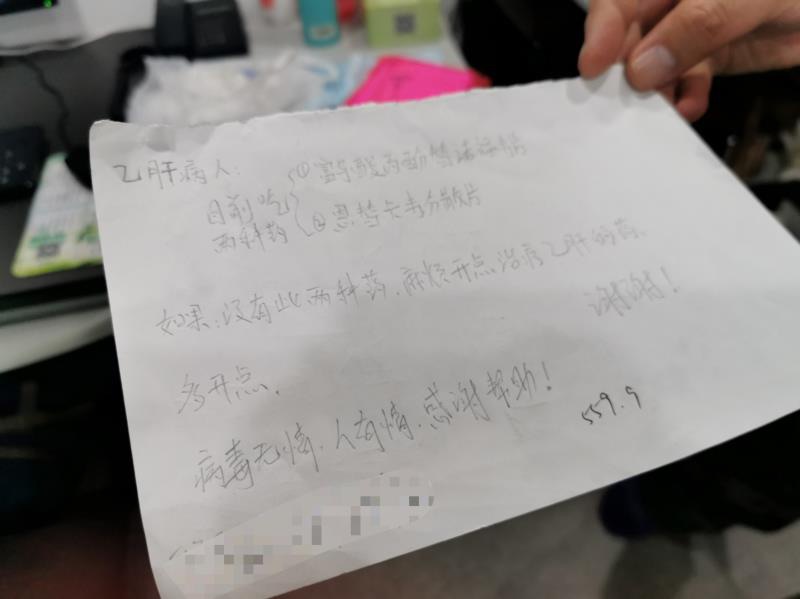 乙肝病人:
目前吃
两种药
①富马酸丙酚替诺福
②恩替卡韦分散片
如果:没有此两种药,麻烦开点治疗乙肝的药,
多开点,
谢谢!
病毒无情,人有情,感谢帮助!
559.9